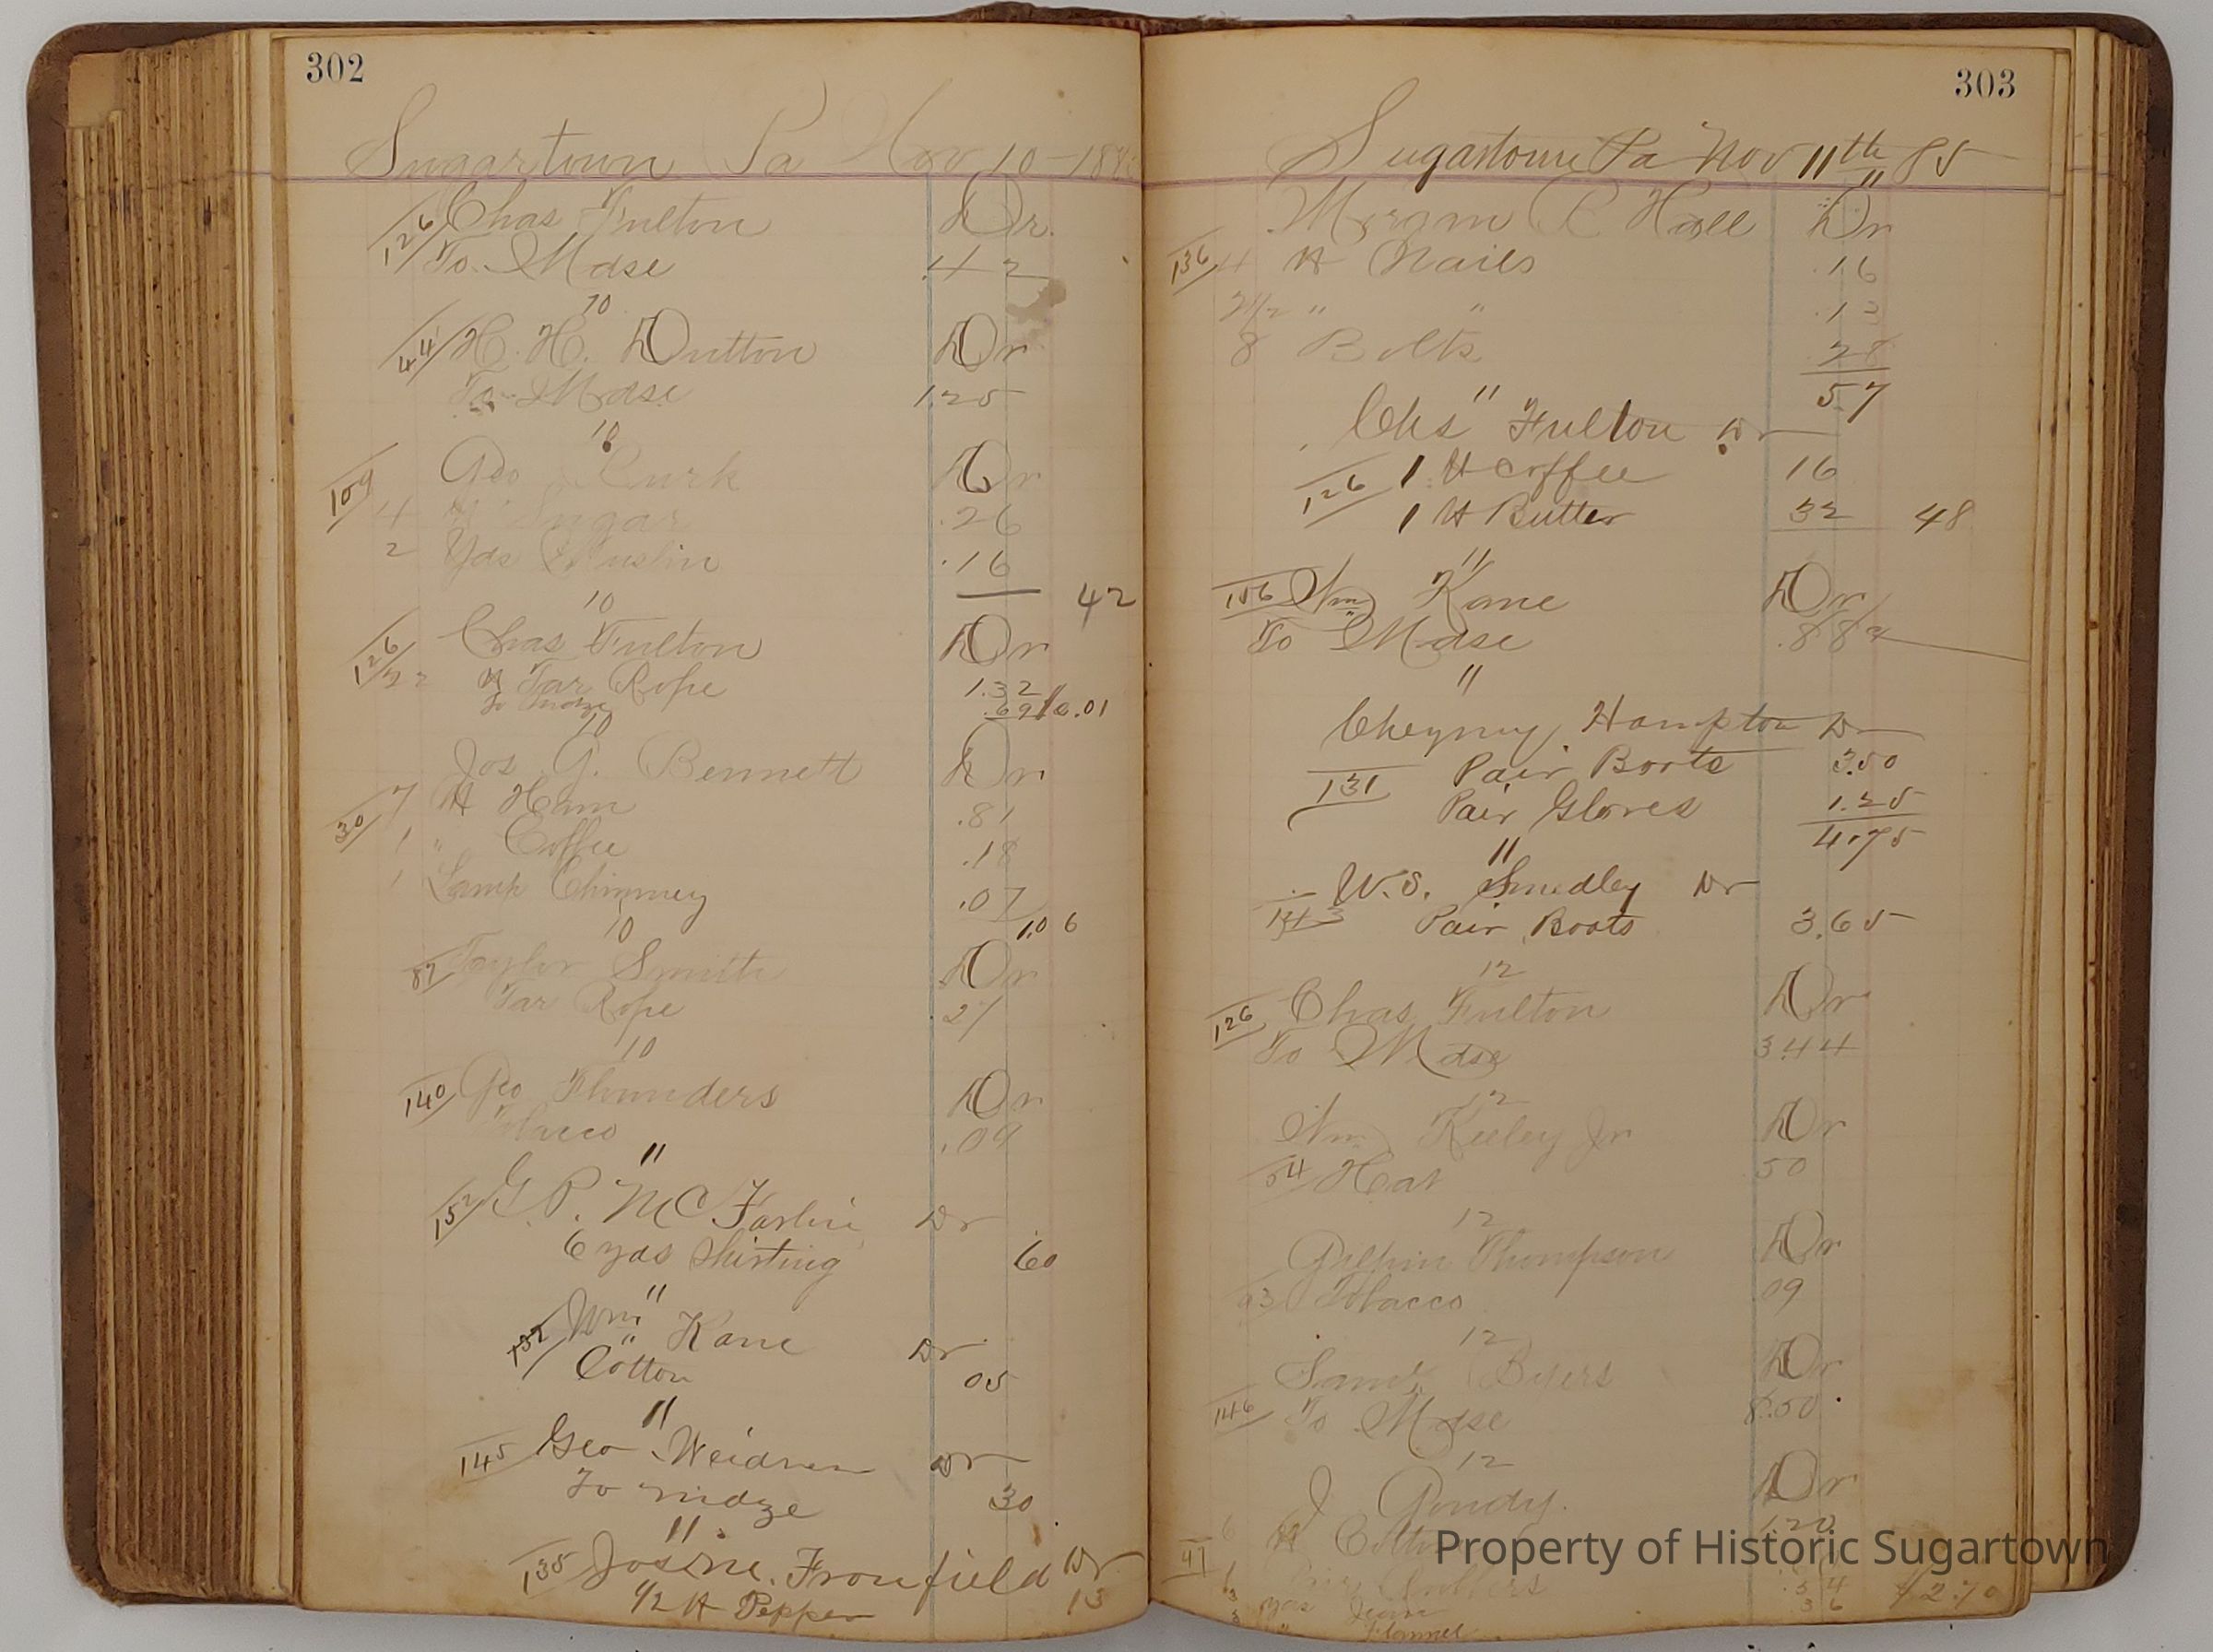 302
Sugartown Pa Nov 10 - 188
126 Chas Fulton Dr.
To Mdse .42
10
44 H. H. Dutton Dr
To Mdse 1.25
10
109 Geo Dr
4 # Sugar .26
2 Yds Muslin .16
42
10
126 Chas Fulton Dr
22 # Tar Rope 1.32
To Mdze .69
10
Jos G. Bennett Dr
7 # Ham .81
30 1 " Coffee .18
1 Lamp Chimney .07
1.06
10
87 Taylor Smith Dr
Tar Rope 27
10
140 Geo Thunders Dr
Tobacco .09
11
152 G. P. McFarlin Dr
6 yds Shirting 60
11
Wm Kane Dr
Cotton 05
11
145 Geo Weidner Dr
To mdze 30
11
135 Fronfield Dr
1/2 # Pepper 13
303
Sugartown Pa Nov 11th 85
11
Morgan R Hall Dr
136 4 # Nails .16
" " .13
8 Bolts 28
57
11
Chs Fulton Dr
126 1 # Coffee 16
1 # Butter 32 48
11
Wm Kane Dr
To Mdse .88
11
Cheyney Hampton Dr
131 Pair Boots 3.50
Pair Gloves 1.25
4.75
11
W. S. Smedley Dr
143 Pair Boots 3.65
12
126 Chas Fulton Dr
To Mdse 3.44
12
Wm Keeley Jr Dr
54 Hat 50
12
Gilpin Thompson Dr
93 Tobacco 09
12
Saml Byers Dr
146 To Mdse 8.50
12
J Goudy. Dr
6 # 1.20
47 1 Pair .54
3 yds 36 $2.70
3 " Flannel
Property of Historic Sugartown